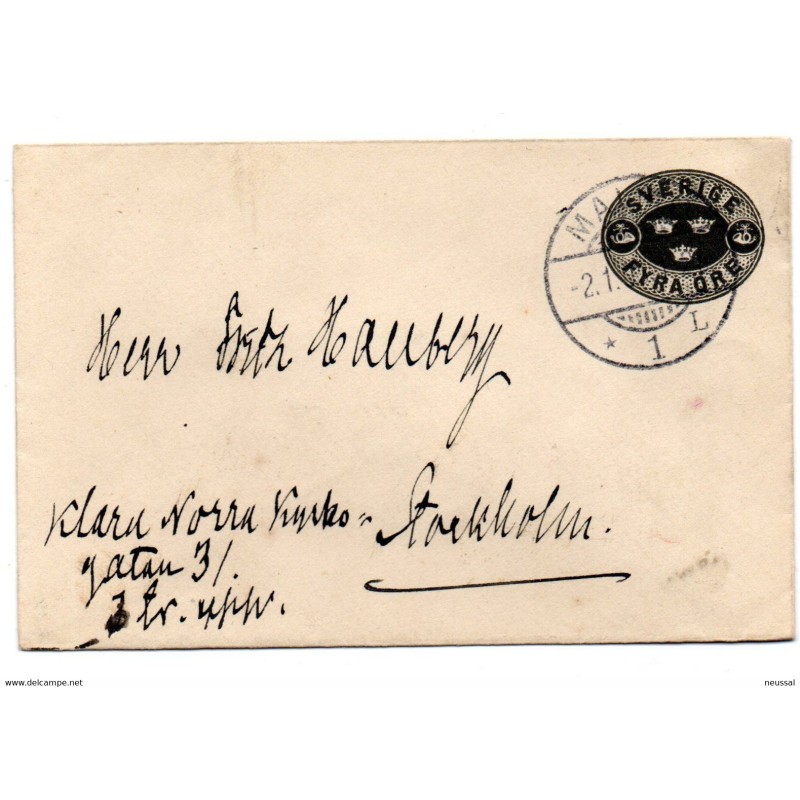 SVERIGE
FYRA ÖRE
MA
-2.1.
* 1 L
Herr Fritz Hallberg
Klara Norra Kyrko=
gatan 31.
3 tr. upp.
Stockholm.
www.delcampe.net
neussal